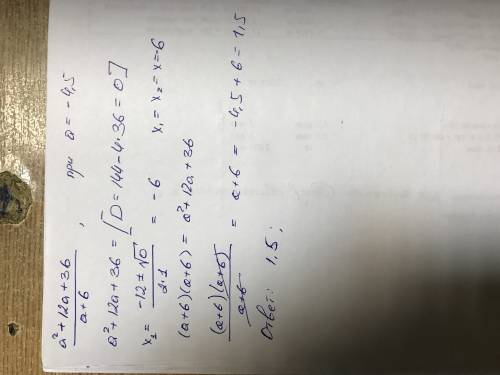 a²+12a+36 / a+6 , при a = -4,5
a²+12a+36 = [D = 144-4·36 = 0]
x₁ = -12 ± √0 / 2·1 = -6 x₁ = x₂ = x = -6
(a+6)(a+6) = a²+12a+36
(a+6)(a+6) / a+6 = a+6 = -4,5+6 = 1,5
Ответ: 1,5;